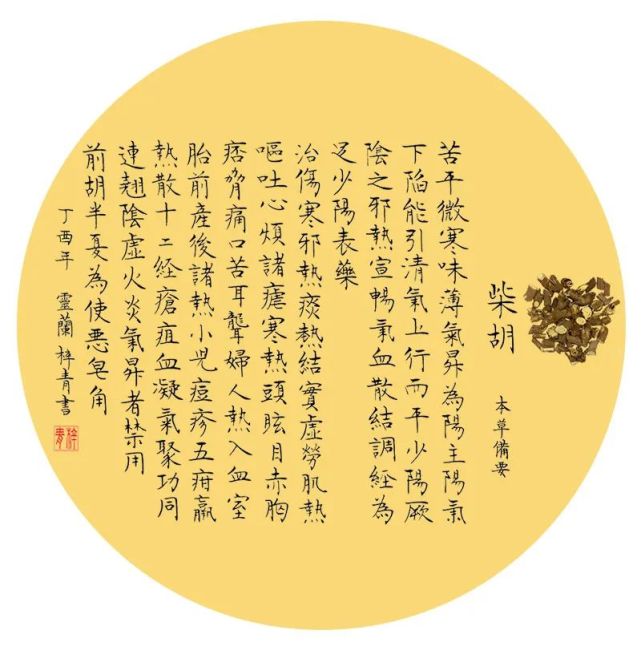 柴胡
本草備要
苦平微寒味薄氣昇為陽主陽氣
下陷能引清氣上行而平少陽厥
陰之邪熱宣暢氣血散結調經為
足少陽表藥
治傷寒邪熱痰熱結實虛勞肌熱
嘔吐心煩諸瘧寒熱頭眩目赤胸
痞脅痛口苦耳聾婦人熱入血室
胎前產後諸熱小兒痘疹五疳羸
熱散十二经瘡疽血凝氣聚功同
連翹陰虛火炎氣昇者禁用
前胡半夏為使惡皂角
丁酉年 靈蘭 梓青書
梓青